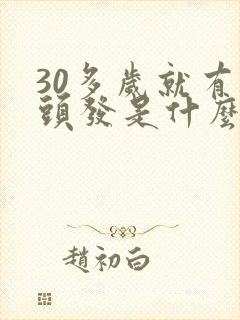 30多歲就有
頭發是什麼
趙初白